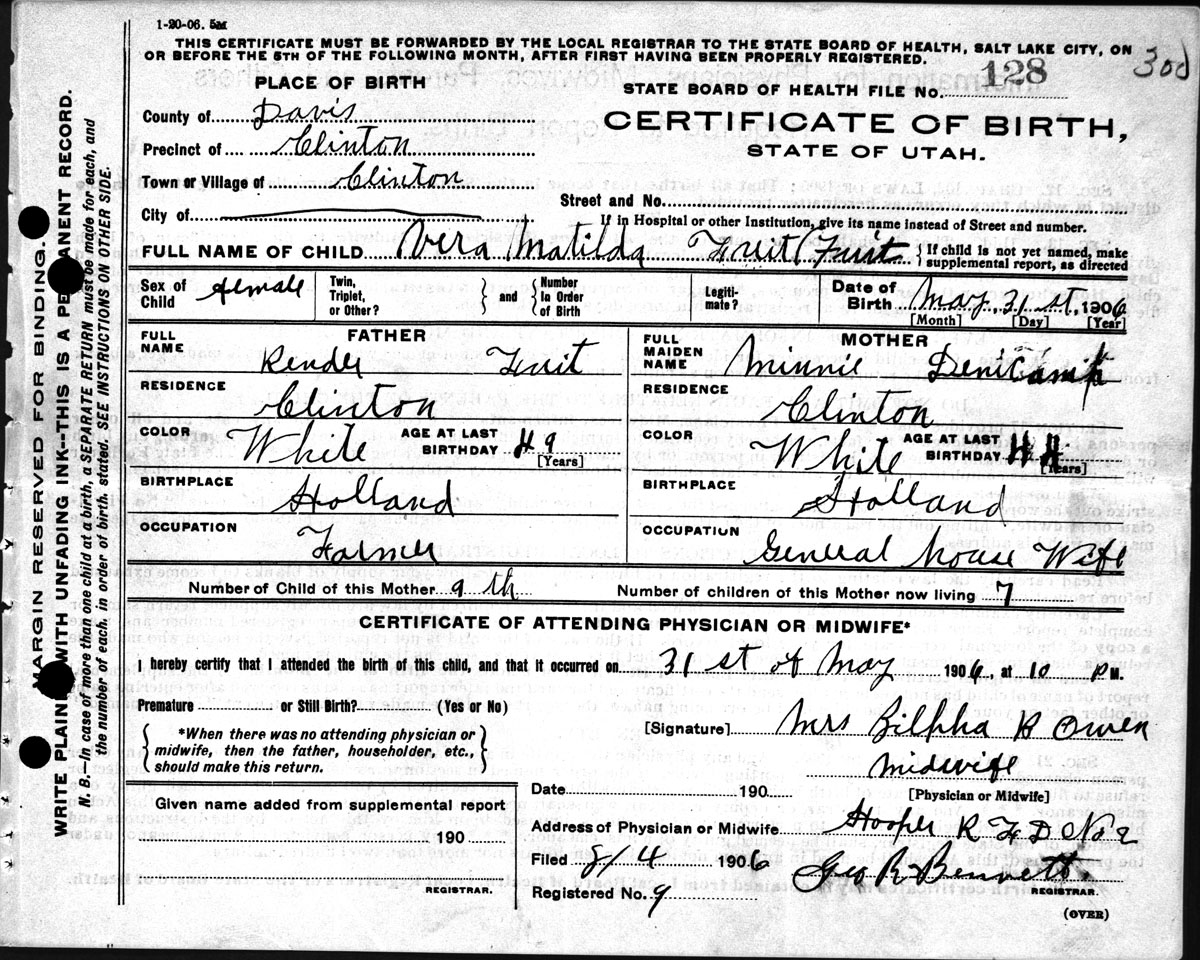 1-20-06. 5M
THIS CERTIFICATE MUST BE FORWARDED BY THE LOCAL REGISTRAR TO THE STATE BOARD OF HEALTH, SALT LAKE CITY, ON
OR BEFORE THE 5TH OF THE FOLLOWING MONTH, AFTER FIRST HAVING BEEN PROPERLY REGISTERED.
300
PLACE OF BIRTH
STATE BOARD OF HEALTH FILE NO. 128
County of Davis
CERTIFICATE OF BIRTH,
Precinct of Clinton
STATE OF UTAH.
Town or Village of Clinton
Street and No.
City of
If in Hospital or other Institution, give its name instead of Street and number.
FULL NAME OF CHILD Vera Matilda Fruit / Fruit { If child is not yet named, make supplemental report, as directed
Sex of Child Female
Twin, Triplet, or Other? } and { Number In Order of Birth
Legitimate?
Date of Birth May, 31 st, 1906
[Month] [Day] [Year]
FATHER
FULL NAME Fruit
RESIDENCE Clinton
COLOR White AGE AT LAST BIRTHDAY 49 [Years]
BIRTHPLACE Holland
OCCUPATION Farmer
MOTHER
FULL MAIDEN NAME Minnie
RESIDENCE Clinton
COLOR White AGE AT LAST BIRTHDAY 44 [Years]
BIRTHPLACE Holland
OCCUPATION General house Wife
Number of Child of this Mother 9 th Number of children of this Mother now living 7
CERTIFICATE OF ATTENDING PHYSICIAN OR MIDWIFE*
I hereby certify that I attended the birth of this child, and that it occurred on 31 st of May 1906, at 10 PM.
Premature or Still Birth? (Yes or No)
*When there was no attending physician or
midwife, then the father, householder, etc.,
should make this return.
[Signature] Mrs Bilpha H Owen
Midwife
[Physician or Midwife]
Date 190
Given name added from supplemental report
190
REGISTRAR.
Address of Physician or Midwife Hooper R F D No. 2
Filed 8/4 1906
Geo R Bennett
REGISTRAR.
Registered No. 9
(OVER)
MARGIN RESERVED FOR BINDING.
WRITE PLAINLY WITH UNFADING INK--THIS IS A PERMANENT RECORD.
N. B.—In case of more than one child at a birth, a SEPARATE RETURN must be made for each, and
the number of each, in order of birth, stated. SEE INSTRUCTIONS ON OTHER SIDE.